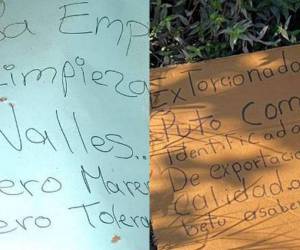 La Emp
Limpieza
Valles..
ero Marer
ero Tolera
Extorcionado
Puto Com
Identificada
De exportacio
calidad.
beto asaber